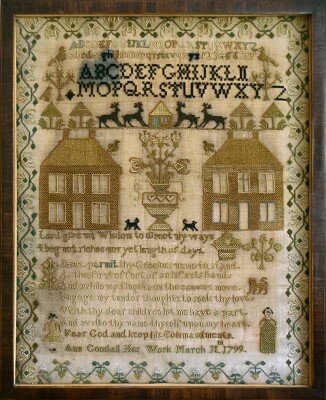 ABCDEFGHIJKLMNOPQRSTUVWXYZ
ABCDEFGHIJKL
MOPQRSTUVWXYZ
Lord give me Wisdom to direct my ways
I beg not riches nor yet length of days
permit thy Gracious name to stand
As the first efforts of an infants hand
And while my fingers on the canvas move
Engage my tender thoughts to seek thy love
With thy dear children let me have a part
And write thy name thyself upon my heart
Fear God and keep his Commandments
Ann Her Work March 1799